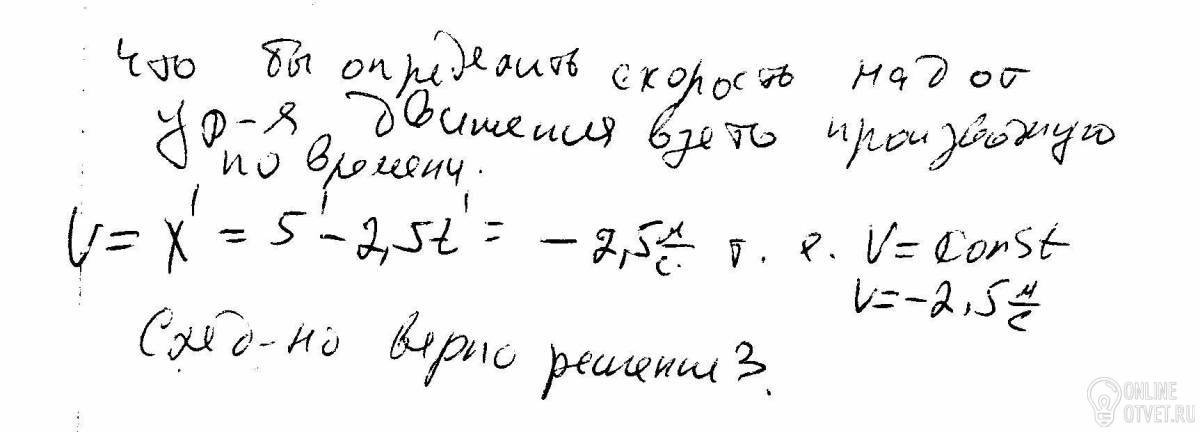 Что бы определить скорость над от
ур-я движения взеть производную
по времени.
V = x' = 5' - 2,5t' = - 2,5 м/с т. е. V = Const
V = - 2,5 м/с
След-но верно решение 3.
ONLINE
OTVET.RU